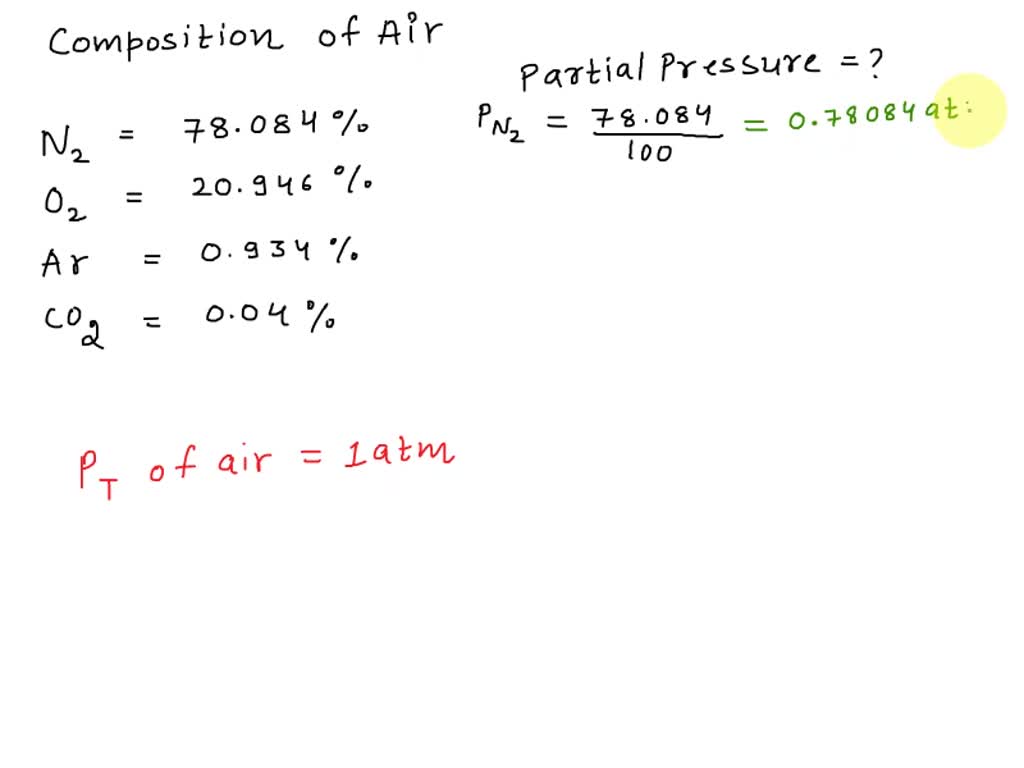 Composition of Air
Partial Pressure = ?
N2 = 78.084 %
O2 = 20.946 %
Ar = 0.934 %
CO2 = 0.04 %
PN2 = 78.084 / 100 = 0.78084 at
PT of air = 1 atm